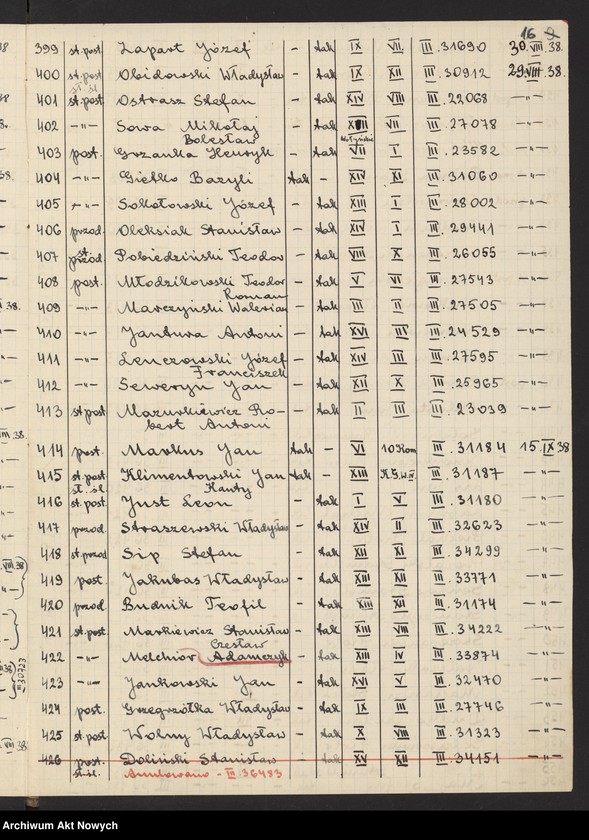 16
399 st.post Łapart Józef - tak IX VII III.31690 30.VIII.38.
400 st.post Obidowski Władysław - tak IX XII III.30912 29.VIII.38.
st. śl.
401 st.post Ostrasz Stefan - tak XIV VIII III.22068 -"-
402 -"- Sowa Mikołaj - tak VII III.27078 -"-
Bolesław
403 post. Grzanka Henryk - tak VII I III.23582 -"-
404 -"- Giełko Bazyli tak - XIV XI III.31060 -"-
405 -"- Sokołowski Józef - tak XIII I III.28002 -"-
406 przod. Oleksiak Stanisław - tak XIV I III.29441 -"-
407 st. przod. Pobiedziński Teodor - tak VIII X III.26055 -"-
408 post. Młodzikowski Teodor - tak V VI III.27543 -"-
Roman
409 -"- Marczyński Walerian - tak III II III.27505 -"-
410 -"- Jantura Antoni - tak XVI III III.24529 -"-
411 -"- Lenczowski Józef - tak XIV III III.27595 -"-
Franciszek
412 -"- Seweryn Jan - tak XII X III.25965 -"-
413 st.post Mazurkiewicz Ro- - tak II III III.23039 -"-
bert Antoni
414 post. Markus Jan tak - VI 10 Kom III.31184 15.IX.38
415 st.post Klimentowski Jan tak - XIII III.31187 -"-
st. śl. Kanty
416 st.post Just Leon - tak I V III.31180 -"-
417 przod Straszewski Władysław - tak XIV II III.32623 -"-
418 st.przod Sip Stefan - tak XII XI III.34299 -"-
419 post. Jakubas Władysław - tak XIII XII III.33771 -"-
420 przod. Budnik Teofil - tak XIII XII III.31174 -"-
421 st.post. Markiewicz Stanisław - tak XIII VIII III.34222 -"-
Czesław
422 -"- Melchior Adamczyk - tak XIII IV III.33874 -"-
423 -"- Jankowski Jan - tak XVI V III.32470 -"-
424 post. Grzegrzółka Władysław - tak IX III III.27746 -"-
425 st.post Wolny Władysław - tak X VIII III.31323 -"-
426 post. Doliński Stanisław - tak XV XII III.34151 -"-
st.śl. Anulowano - III.36483
Archiwum Akt Nowych